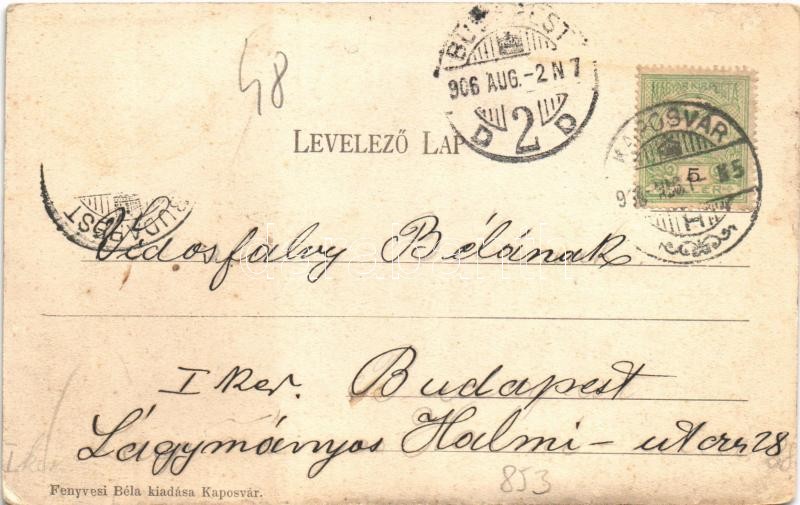 48
BUDAPEST
906 AUG.-2 N 7
D 2 D
LEVELEZŐ LAP
MAGYAR KIR. POSTA
KAPOSVÁR
5
BUDAPEST
Vidosfalvy Bélának
I ker. Budapest
Lágymányos Halmi-utca 28
I ker
853
Fenyvesi Béla kiadása Kaposvár.